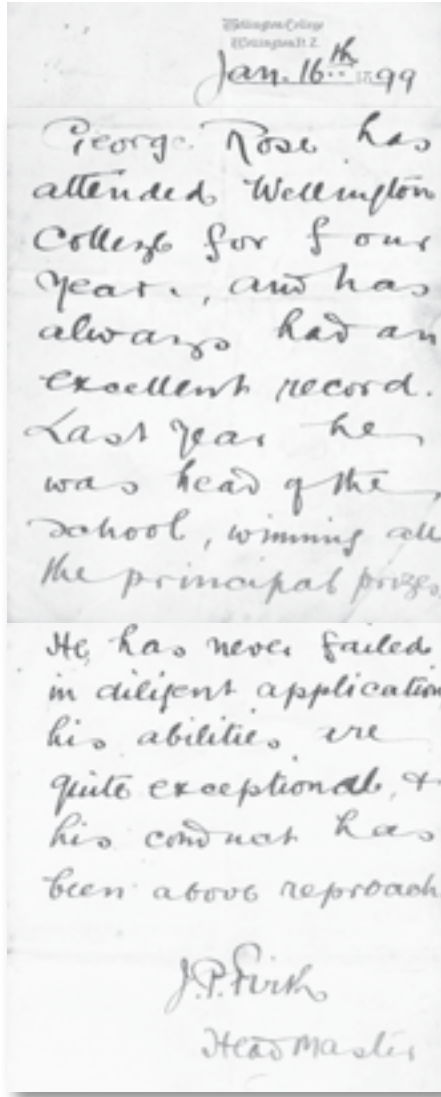 Wellington College
Wellington N.Z.
Jan. 16th 1899
George Rose has
attended Wellington
College for four
years, and has
always had an
excellent record.
Last year he
was head of the
school, winning all
the principal prizes.
He has never failed
in diligent application
his abilities are
quite exceptional, &
his conduct has
been above reproach
J.P. Firth
Head Master